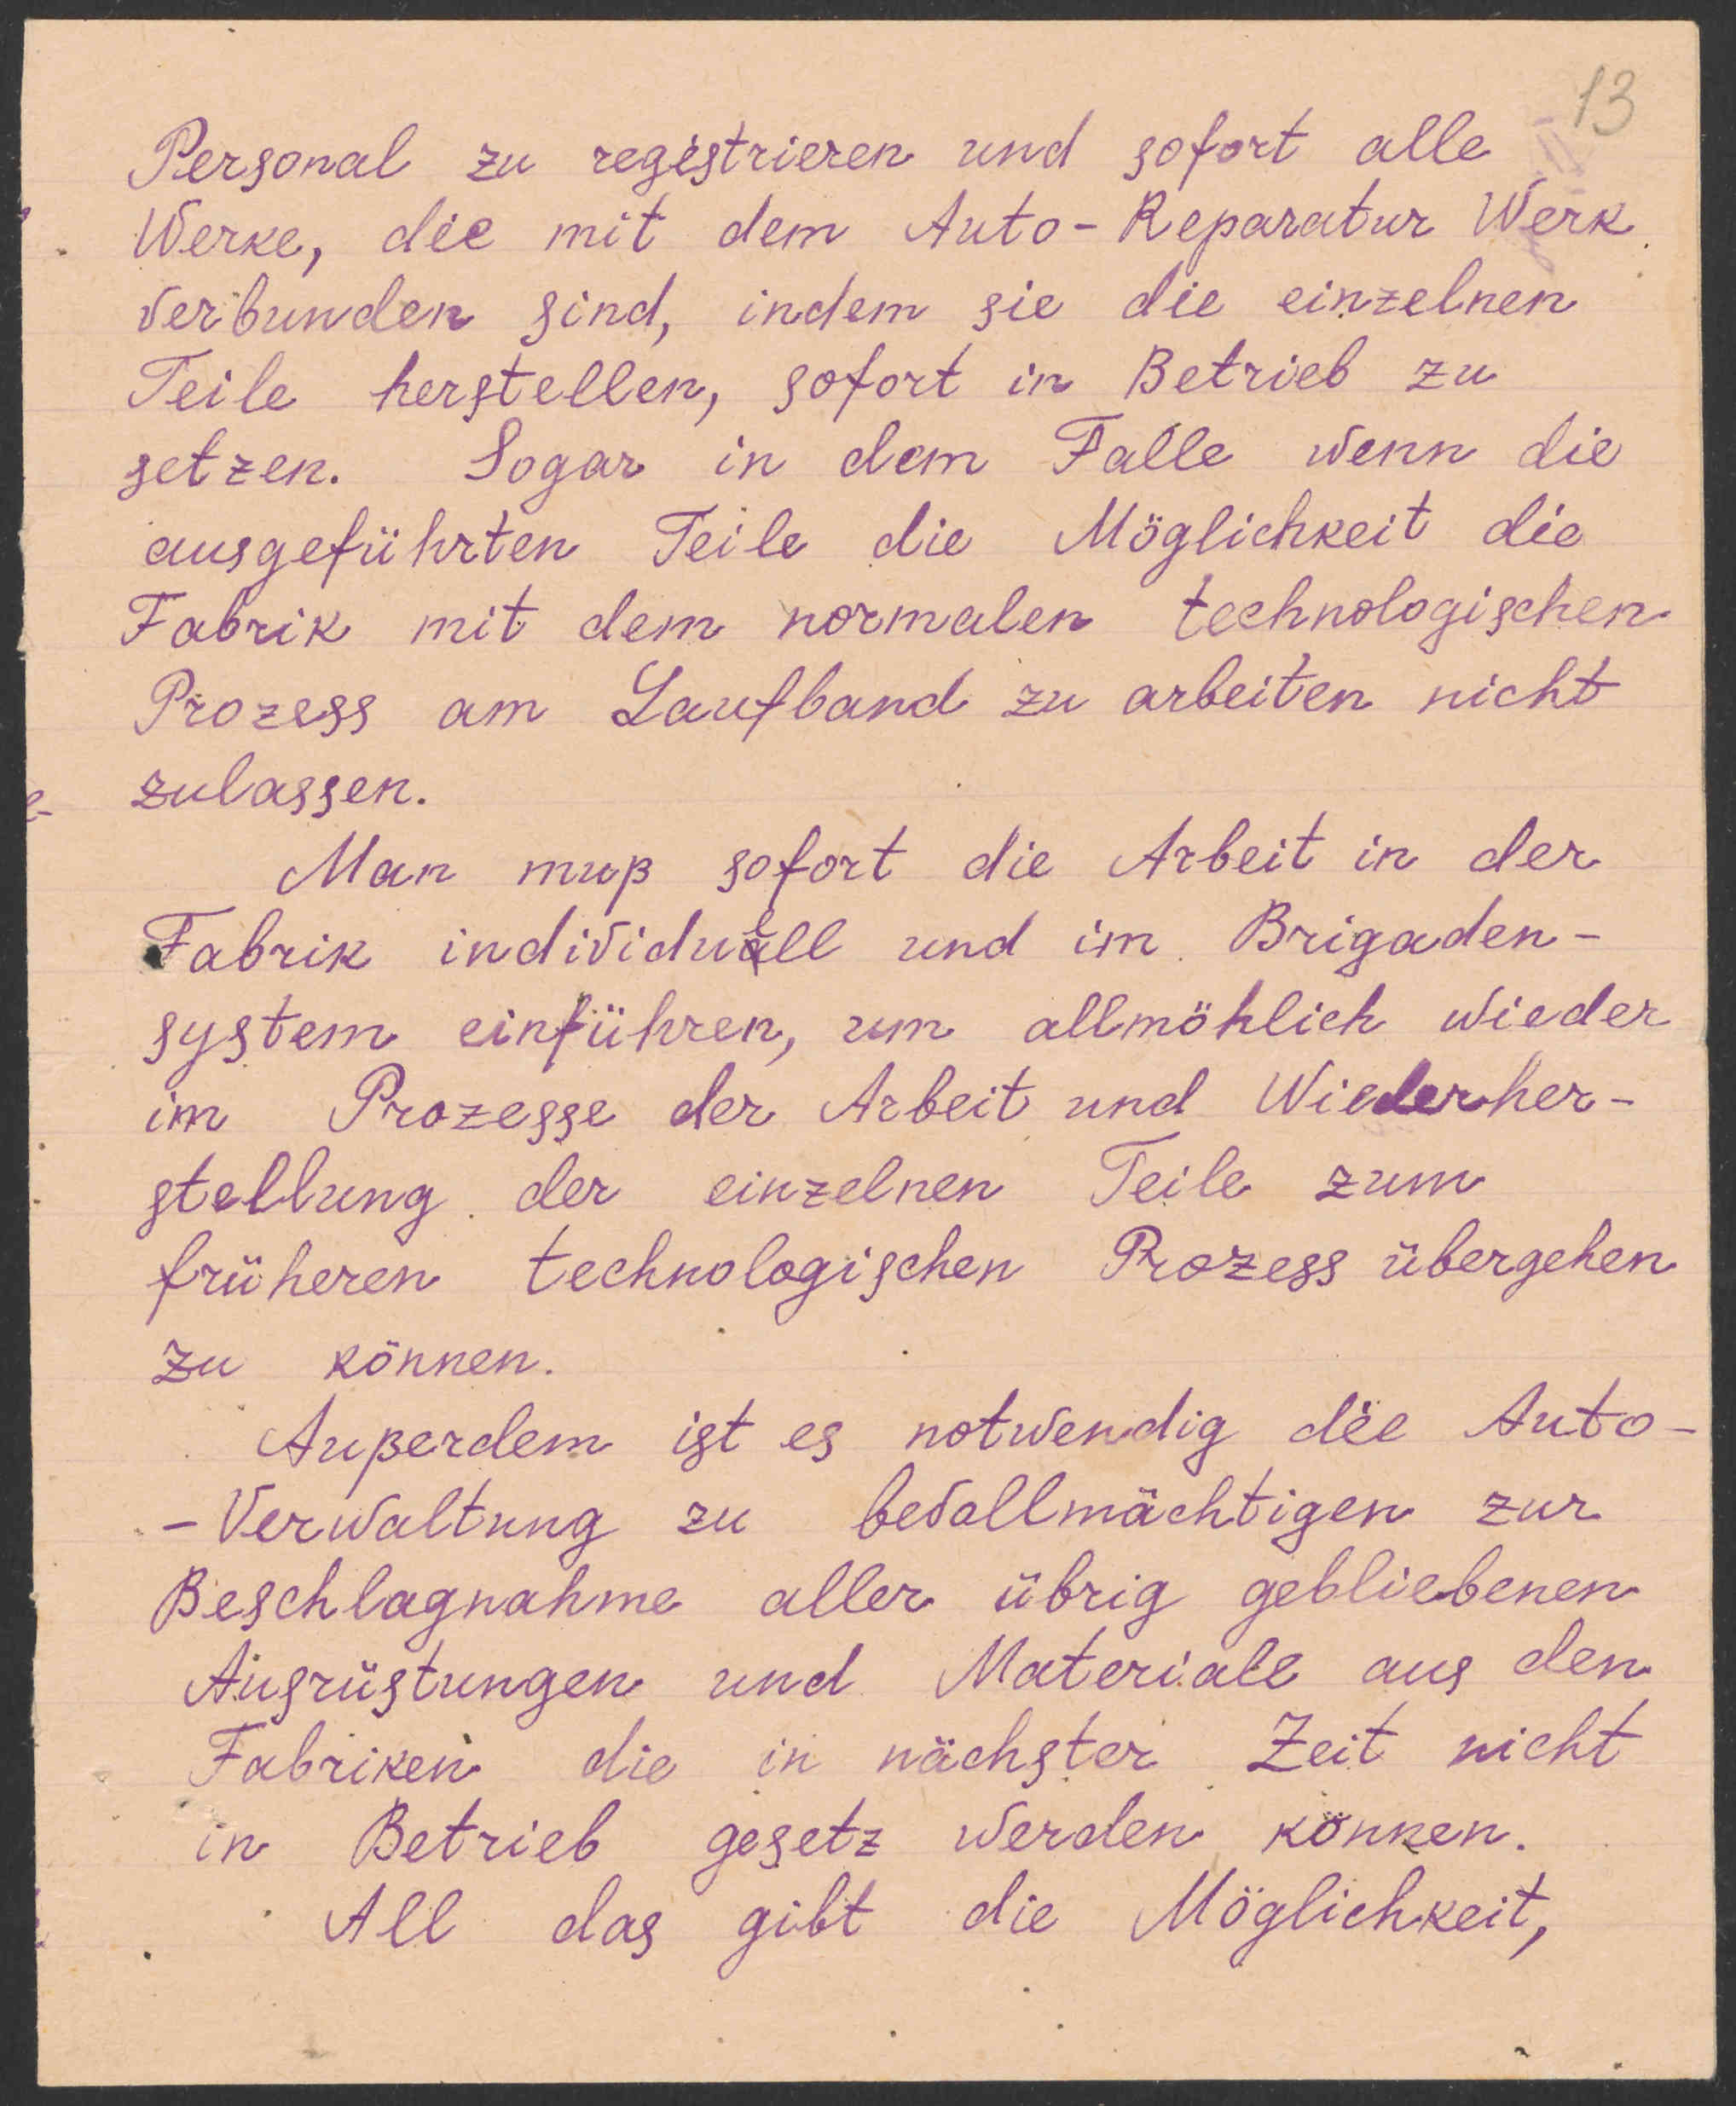 13
Personal zu registrieren und sofort alle
Werke, die mit dem Auto-Reparatur Werk
verbunden sind, indem sie die einzelnen
Teile herstellen, sofort in Betrieb zu
setzen. Sogar in dem Falle wenn die
ausgeführten Teile die Möglichkeit die
Fabrik mit dem normalen technologischen
Prozess am Laufband zu arbeiten nicht
zulassen.
Man muß sofort die Arbeit in der
Fabrik individuell und im Brigaden-
system einführen, um allmöhlich wieder
im Prozesse der Arbeit und Wiederher-
stellung der einzelnen Teile zum
früheren technologischen Prozess übergehen
zu können.
Außerdem ist es notwendig die Auto-
-Verwaltung zu bevallmächtigen zur
Beschlagnahme aller übrig gebliebenen
Ausrüstungen und Materiale aus den
Fabriken die in nächster Zeit nicht
in Betrieb gesetz werden können.
All das gibt die Möglichkeit,